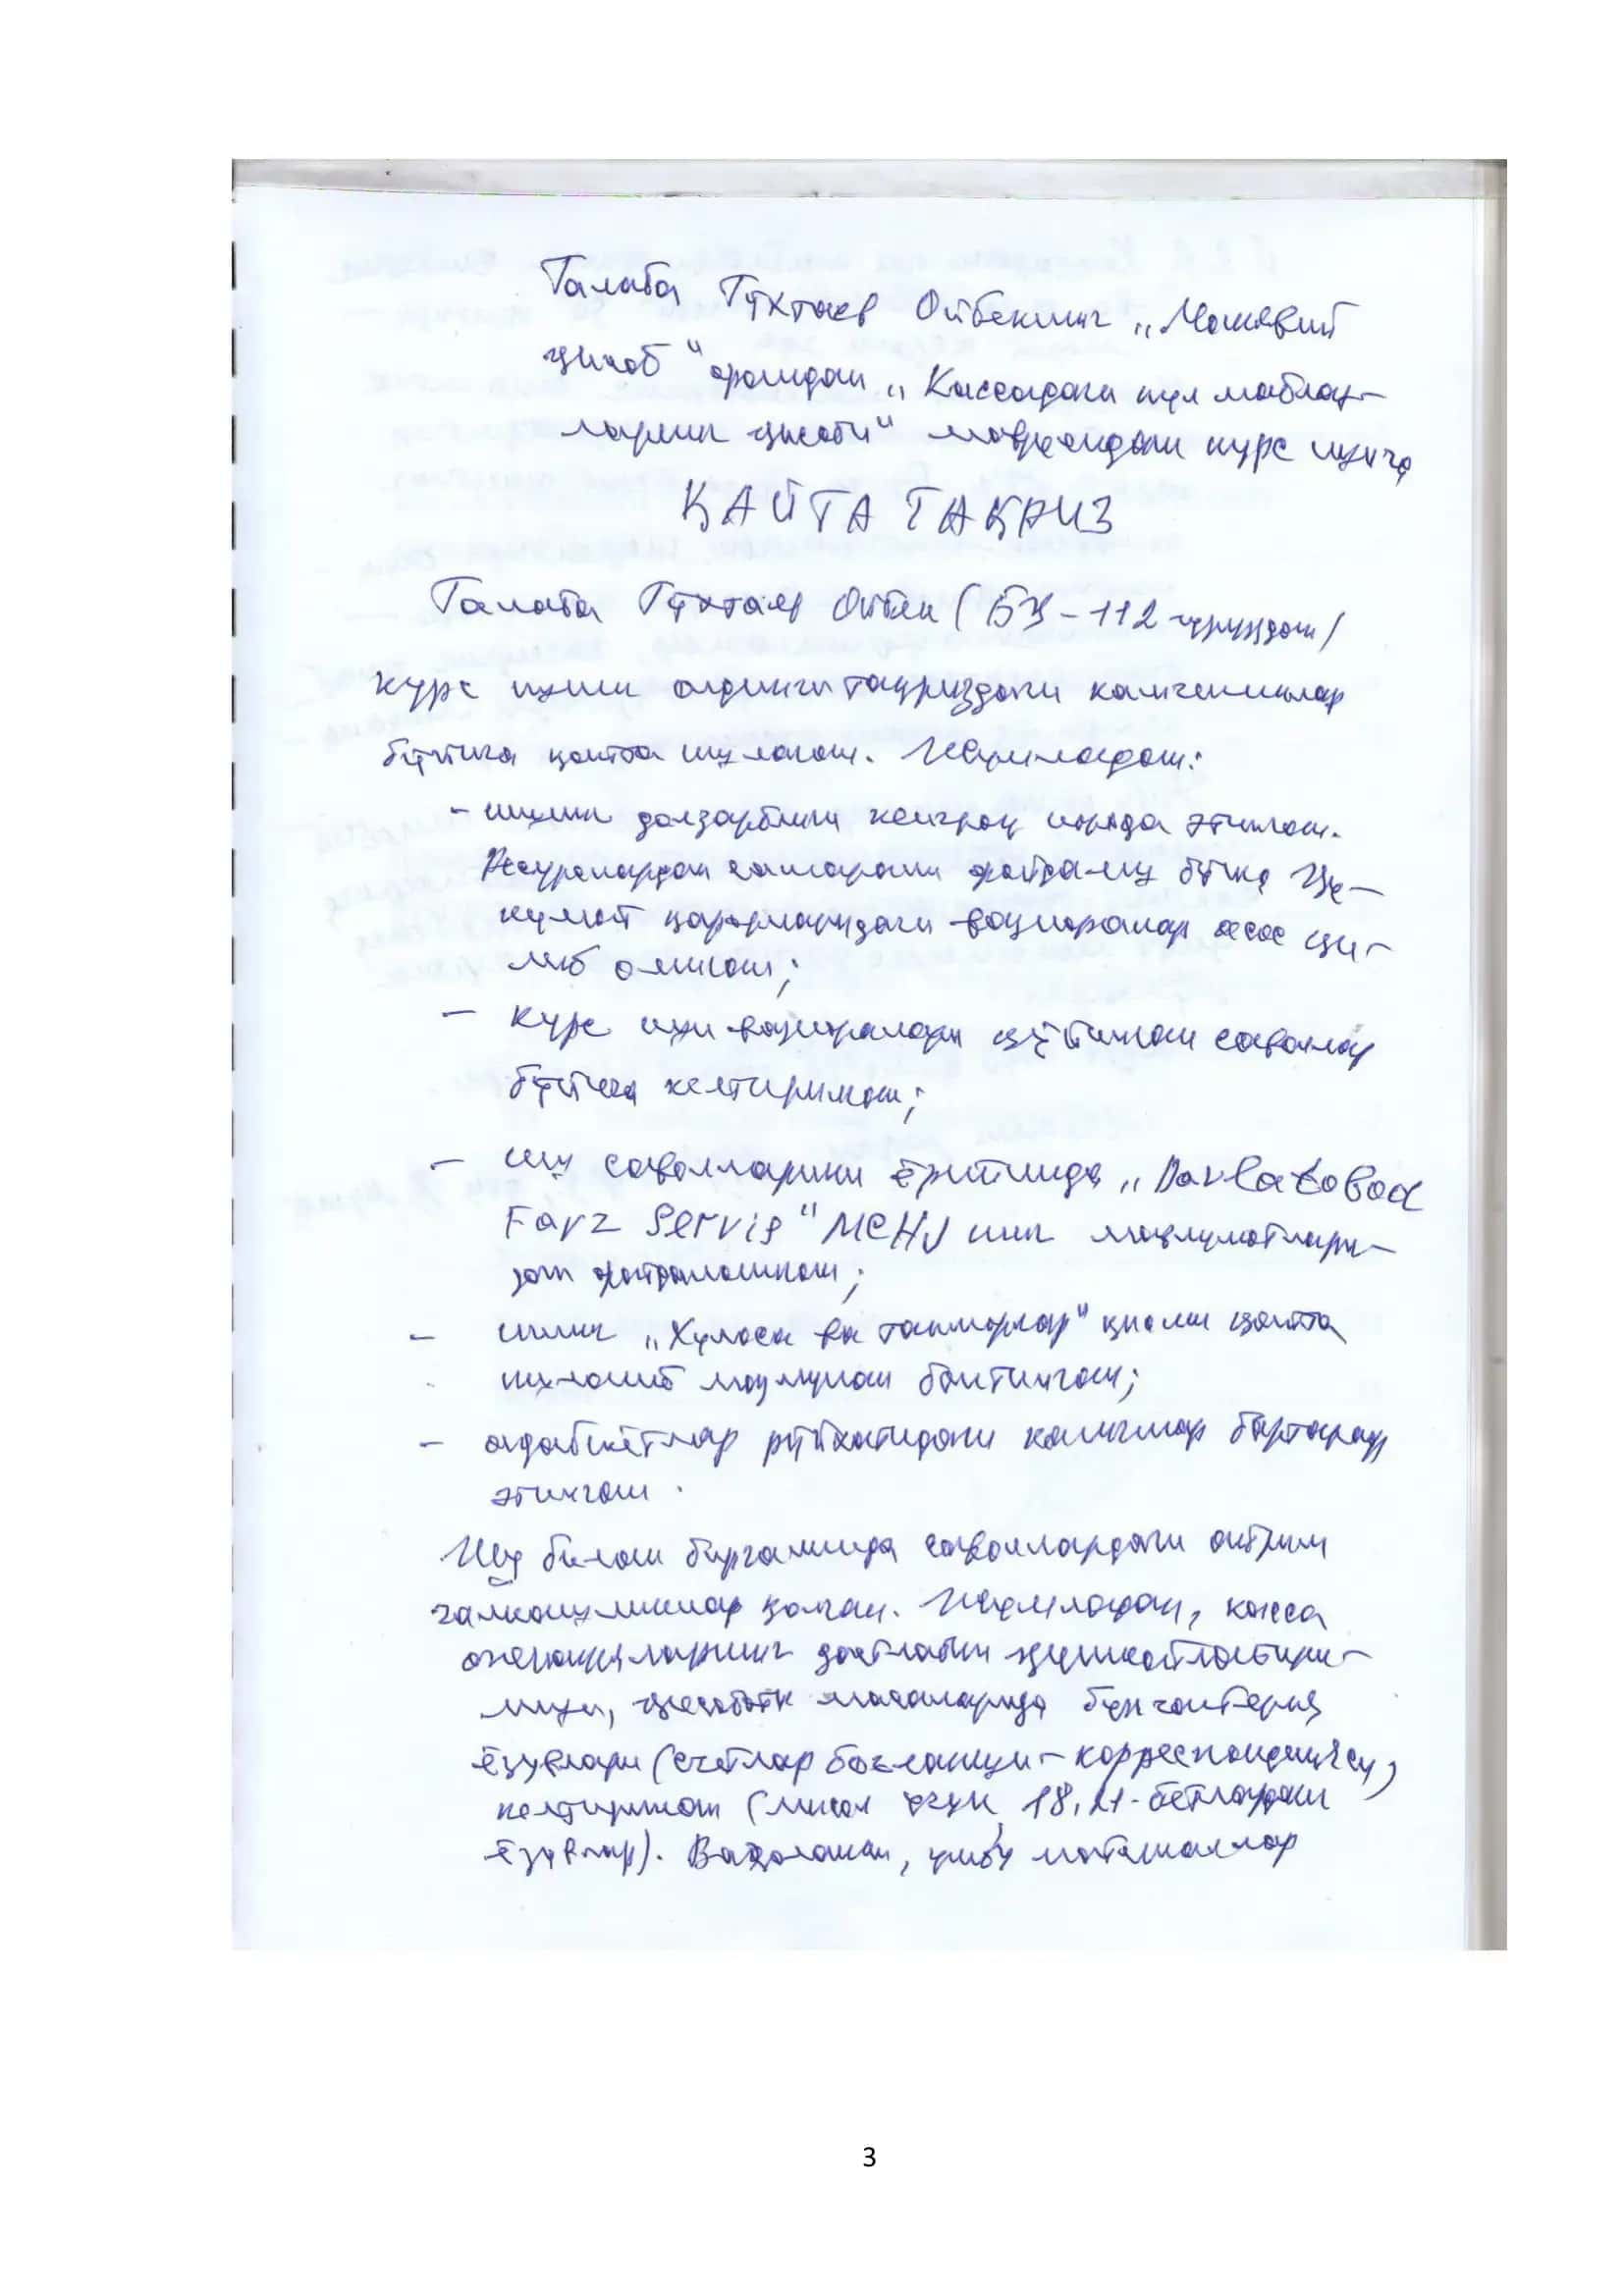 Талаба Тўхтаев Ойбекнинг „Молиявий
ҳисоб" фанидан „Кассадаги пул маблағ-
ларини ҳисоби" мавзусидаги курс ишига
ҚАЙТА ТАҚРИЗ
Талаба Тўхтаев Ойбек (БҲ-112 гуруҳдан)
курс ишини олдинги тақриздаги камчиликлар
бўйича қайта ишлаган. Жумладан:
- ишнинг долзарблиги кенгроқ ифода этилган.
Ресурслардан самарали фойдаланиш бўйича Ҳу-
кумат қарорларидаги вазифалар асос қи-
либ олинган;
- курс иши вазифалари қўйилган саволлар
бўйича келтирилган;
- иш саволларини ёритишда „Davlatobod
Fayz Servis" MCHJ нинг маълумотлари-
дан фойдаланилган;
- ишнинг „Хулоса ва таклифлар" қисми қайта
ишланиб мазмунан бойитилган;
- адабиётлар рўйхатидаги камчиликлар бартараф
этилган.
Шу билан биргаликда саволлардаги айрим
чалкашликлар қолган. Жумладан, касса
операцияларининг дастлабки ҳужжатлаштири-
лиши, ҳисобот масалаларида бухгалтерия
ёзувлари (счётлар боғланиши-корреспонденцияси)
келтирилган (мисол учун, 18, 21-бетлардаги
ёзувлар). Ваҳоланки, ушбу материаллар
3